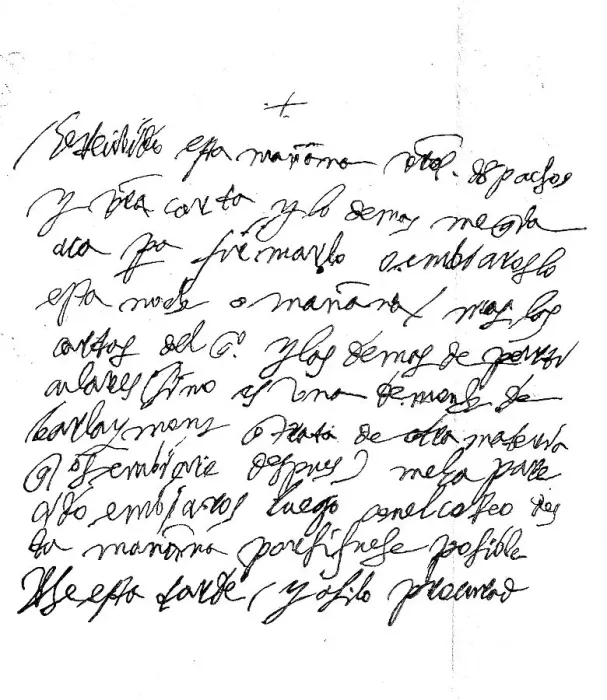 esta mañana despachos
y vra carta y lo demas me queda
aca pa firmarlo o embiaroslo
esta noche o mañana / mas las
cartas del y las demas de parti
culares (sino es una de mons de
barlaymont q trata de otra materia
q os embiare despues) me ha pare
cido embiaros luego con el des
ta mañana por si fuese posible
verse esta tarde / y asi lo procurad